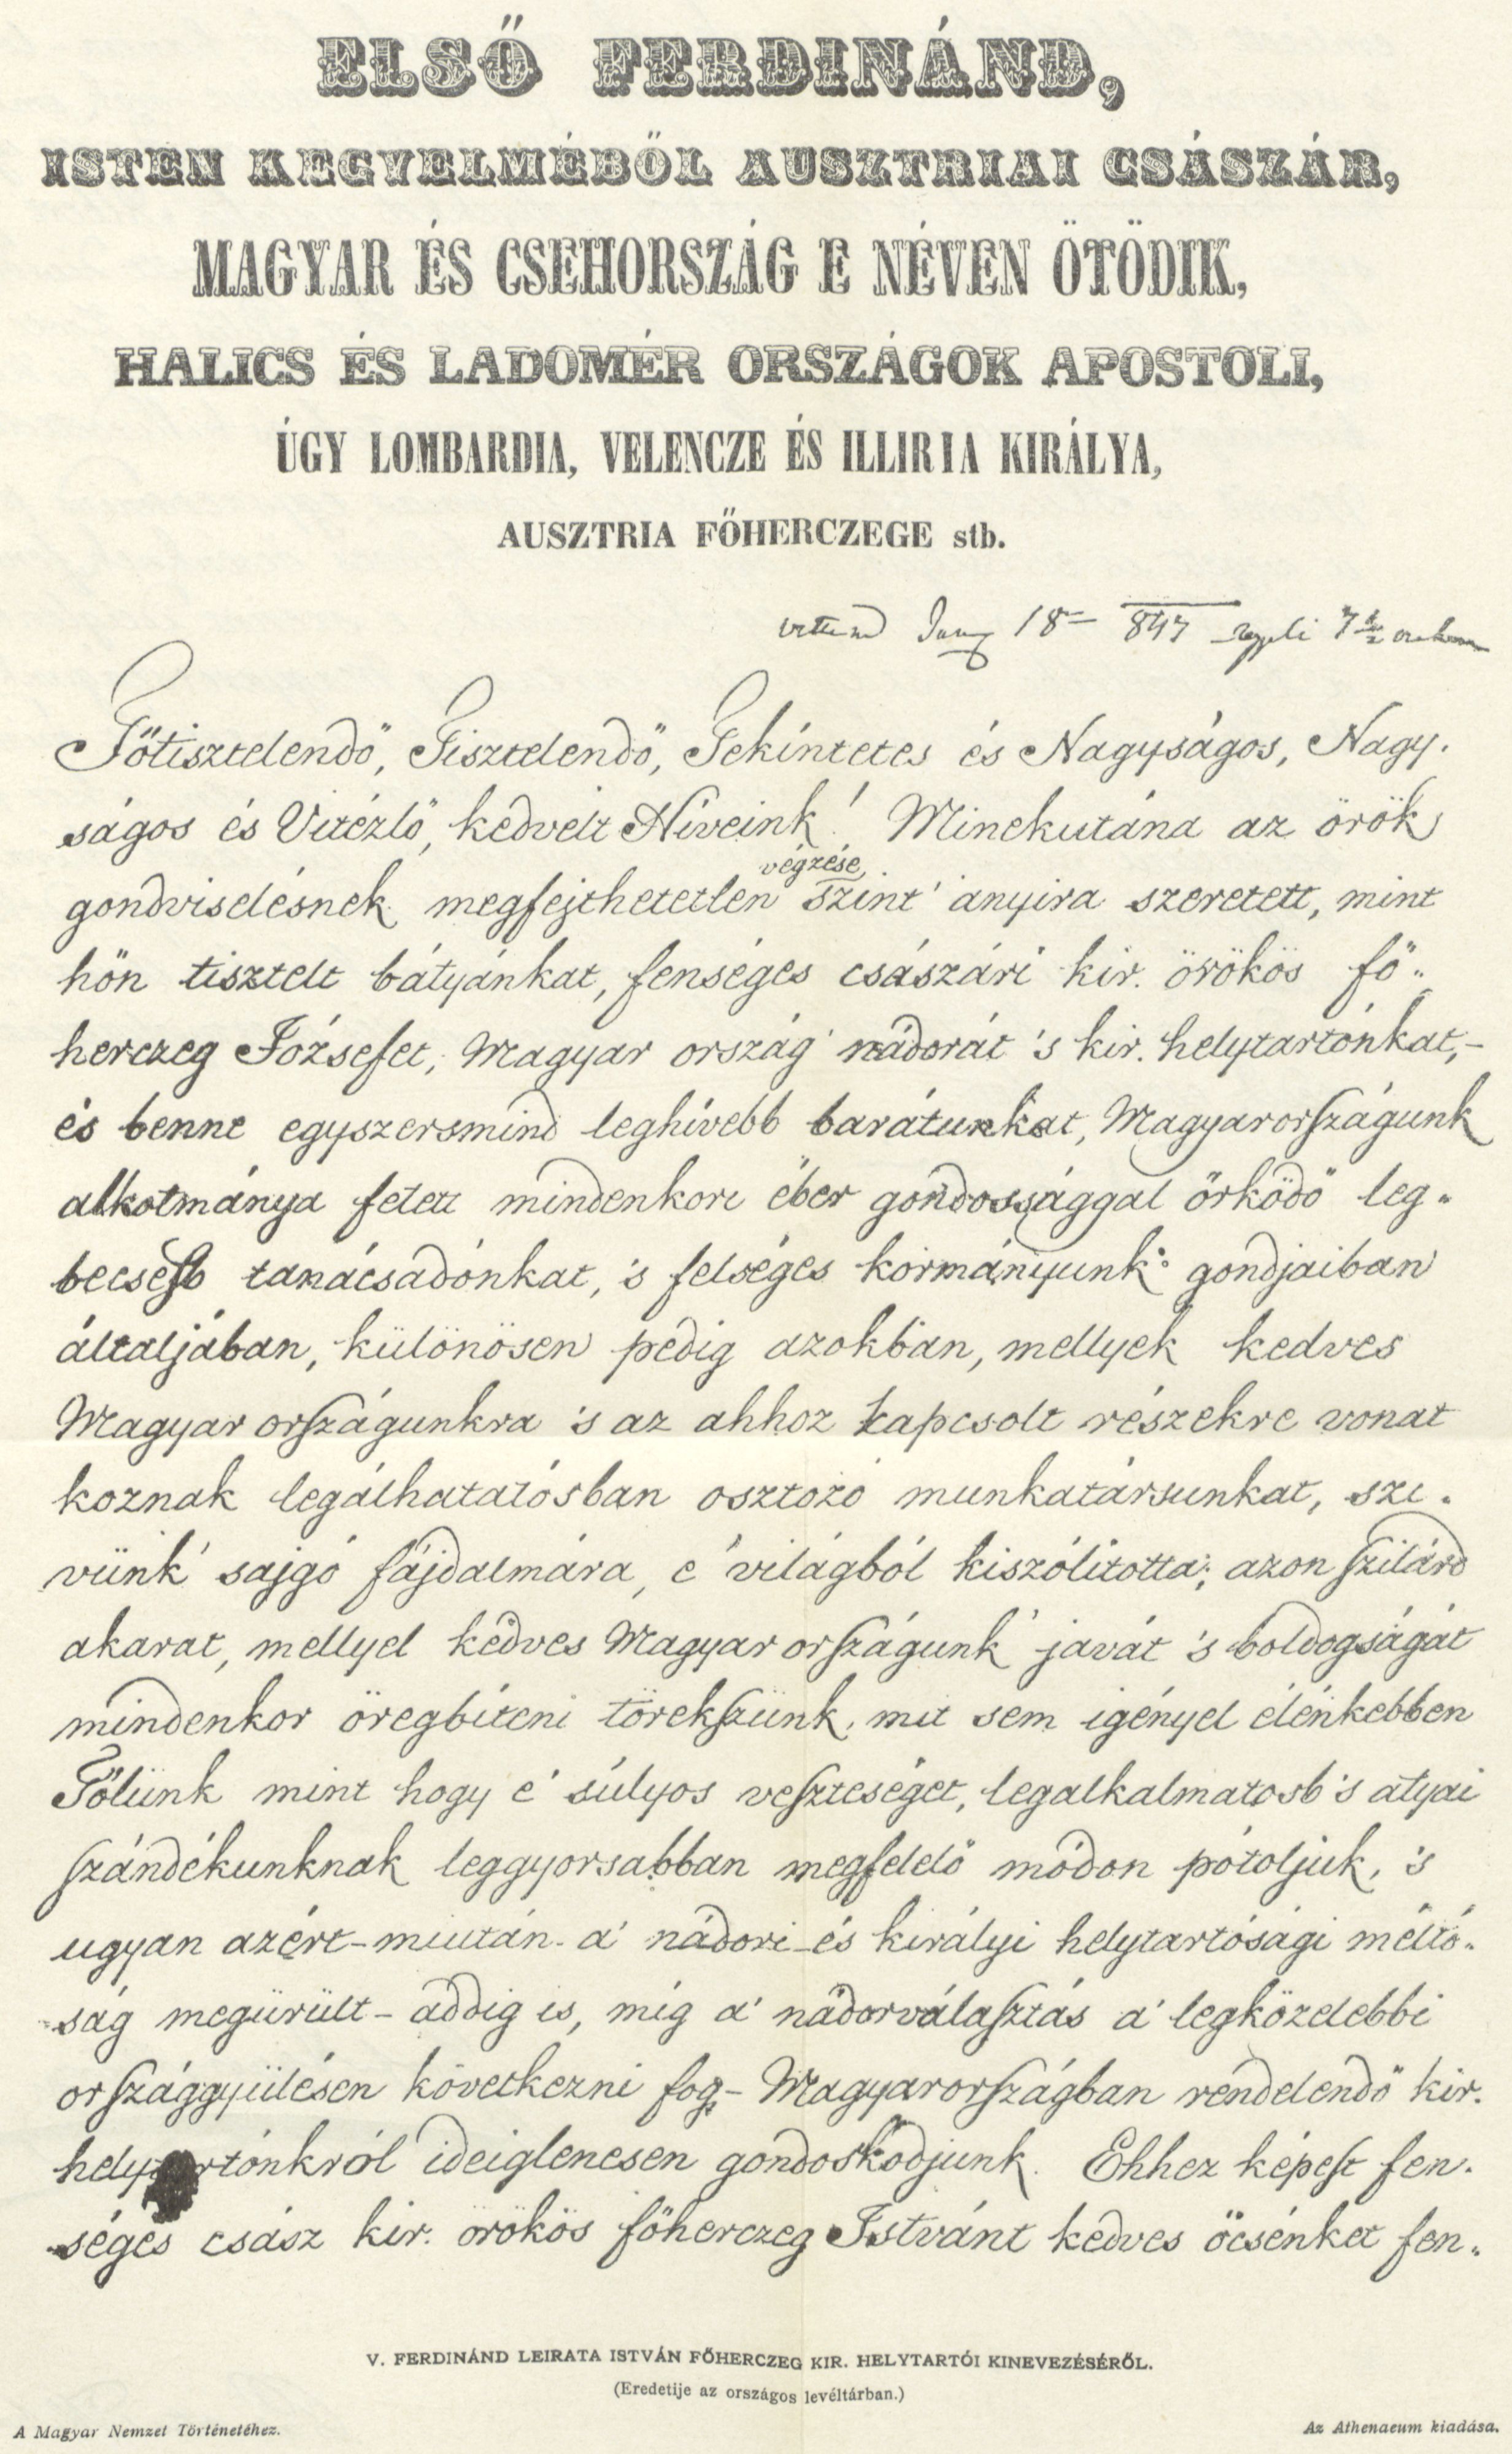 ELSŐ FERDINÁND,
ISTEN KEGYELMÉBŐL AUSZTRIAI CSÁSZÁR,
MAGYAR ÉS CSEHORSZÁG E NÉVEN ÖTÖDIK,
HALICS ÉS LADOMÉR ORSZÁGOK APOSTOLI,
ÚGY LOMBARDIA, VELENCZE ÉS ILLIRIA KIRÁLYA,
AUSZTRIA FŐHERCZEGE stb.
18 847 7 1/2
Főtisztelendő, Tisztelendő, Tekíntetes és Nagyságos, Nagy-
ságos és Vitézlő, kedvelt Híveink! Minekutána az örök
végzése,
gondviselésnek megfejthetetlen szint' anyira szeretett, mint
hőn tisztelt bátyánkat, fenséges császári kir. örökös fő-
herczeg Józsefet, Magyar ország' nádorát 's kir. helytartónkat,-
és benne egyszersmind leghívebb barátunkat, Magyarországunk
alkotmánya felett mindenkori éber gondossággal őrködő leg-
becsesb tanácsadónkat, 's felséges kormányunk' gondjaiban
általjában, különösen pedig azokban, mellyek kedves
Magyarországunkra 's az ahhoz kapcsolt részekre vonat
koznak legálhatatósban osztozó munkatársunkat, szi-
vünk' sajgó fájdalmára, e' világból kiszólította; azon szilárd
akarat, mellyel kedves Magyarországunk' javát 's boldogságát
mindenkor öregbíteni törekszünk, mit sem igényel élénkebben
Tőlünk mint hogy e' súlyos veszteséget, legalkalmatosb 's atyai
szándékunknak leggyorsabban megfelelő módon pótoljuk, 's
ugyan azért - miután a' nádori és királyi helytartósági méltó-
ság megürült - addig is, míg a' nádorválasztás a' legközelebbi
országgyülésen következni fog,- Magyarországban rendelendő kir.
helytartónkról ideiglenesen gondoskodjunk. Ehhez képest fen-
séges csász kir. örökös főherczeg Istvánt kedves öcsénket fen-
V. FERDINÁND LEIRATA ISTVÁN FŐHERCZEG KIR. HELYTARTÓI KINEVEZÉSÉRŐL.
(Eredetije az országos levéltárban.)
A Magyar Nemzet Történetéhez.
Az Athenaeum kiadása.